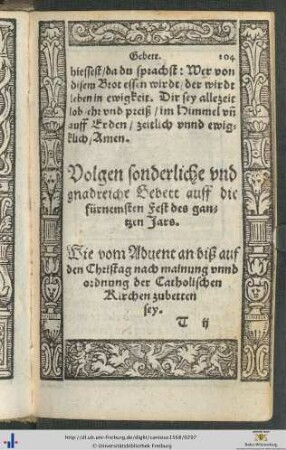 Gebett. 104
hiessest/da du sprachst: Wer von
disem Brot essen wirdt/der wirdt
leben in ewigkeit. Dir sey allezeit
lob/ehr vnd preiß/im Himmel vñ
auff Erden/zeitlich vnnd ewig-
klich/Amen.
Volgen sonderliche vnd
gnadreiche Gebett auff die
fürnemsten Fest des gan-
tzen Jars.
Wie vom Aduent an biß auf
den Christag nach mainung vnnd
ordnung der Catholischen
Kirchen zubetten
sey.
T ij
http://dl.ub.uni-freiburg.de/diglit/canisius1568/0297
© Universitätsbibliothek Freiburg